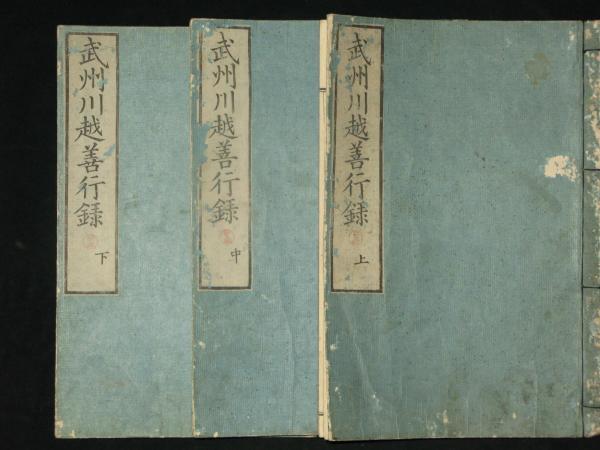 武州川越善行録 上
武州川越善行録 中
武州川越善行録 下